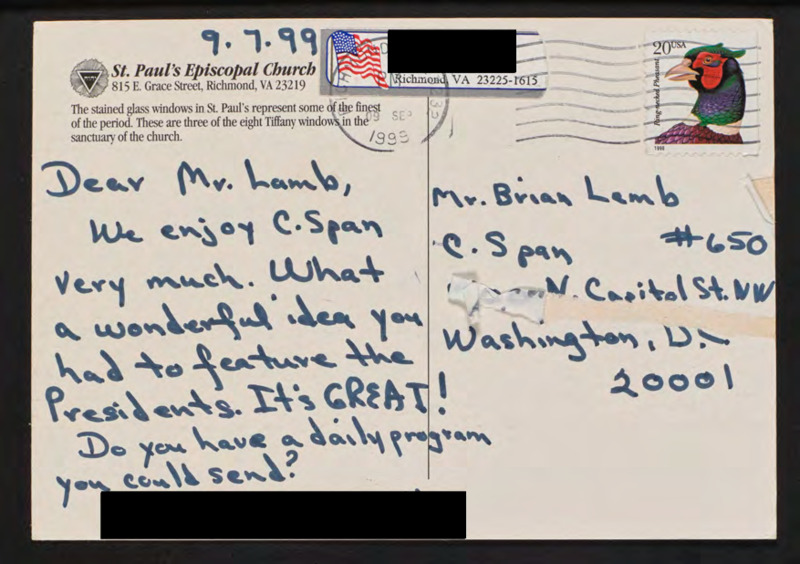 9.7.99
St. Paul's Episcopal Church
815 E. Grace Street, Richmond, VA 23219
The stained glass windows in St. Paul's represent some of the finest
of the period. These are three of the eight Tiffany windows in the
sanctuary of the church.
Richmond, VA 23225-1615
09 SEP
1999
20USA
Ring-necked Pheasant
1998
Dear Mr. Lamb,
We enjoy C.Span
very much. What
a wonderful idea you
had to feature the
Presidents. It's GREAT!
Do you have a daily program
you could send?
Mr. Brian Lamb
C. Span #650
N. Capitol St. NW
Washington, D.C.
20001